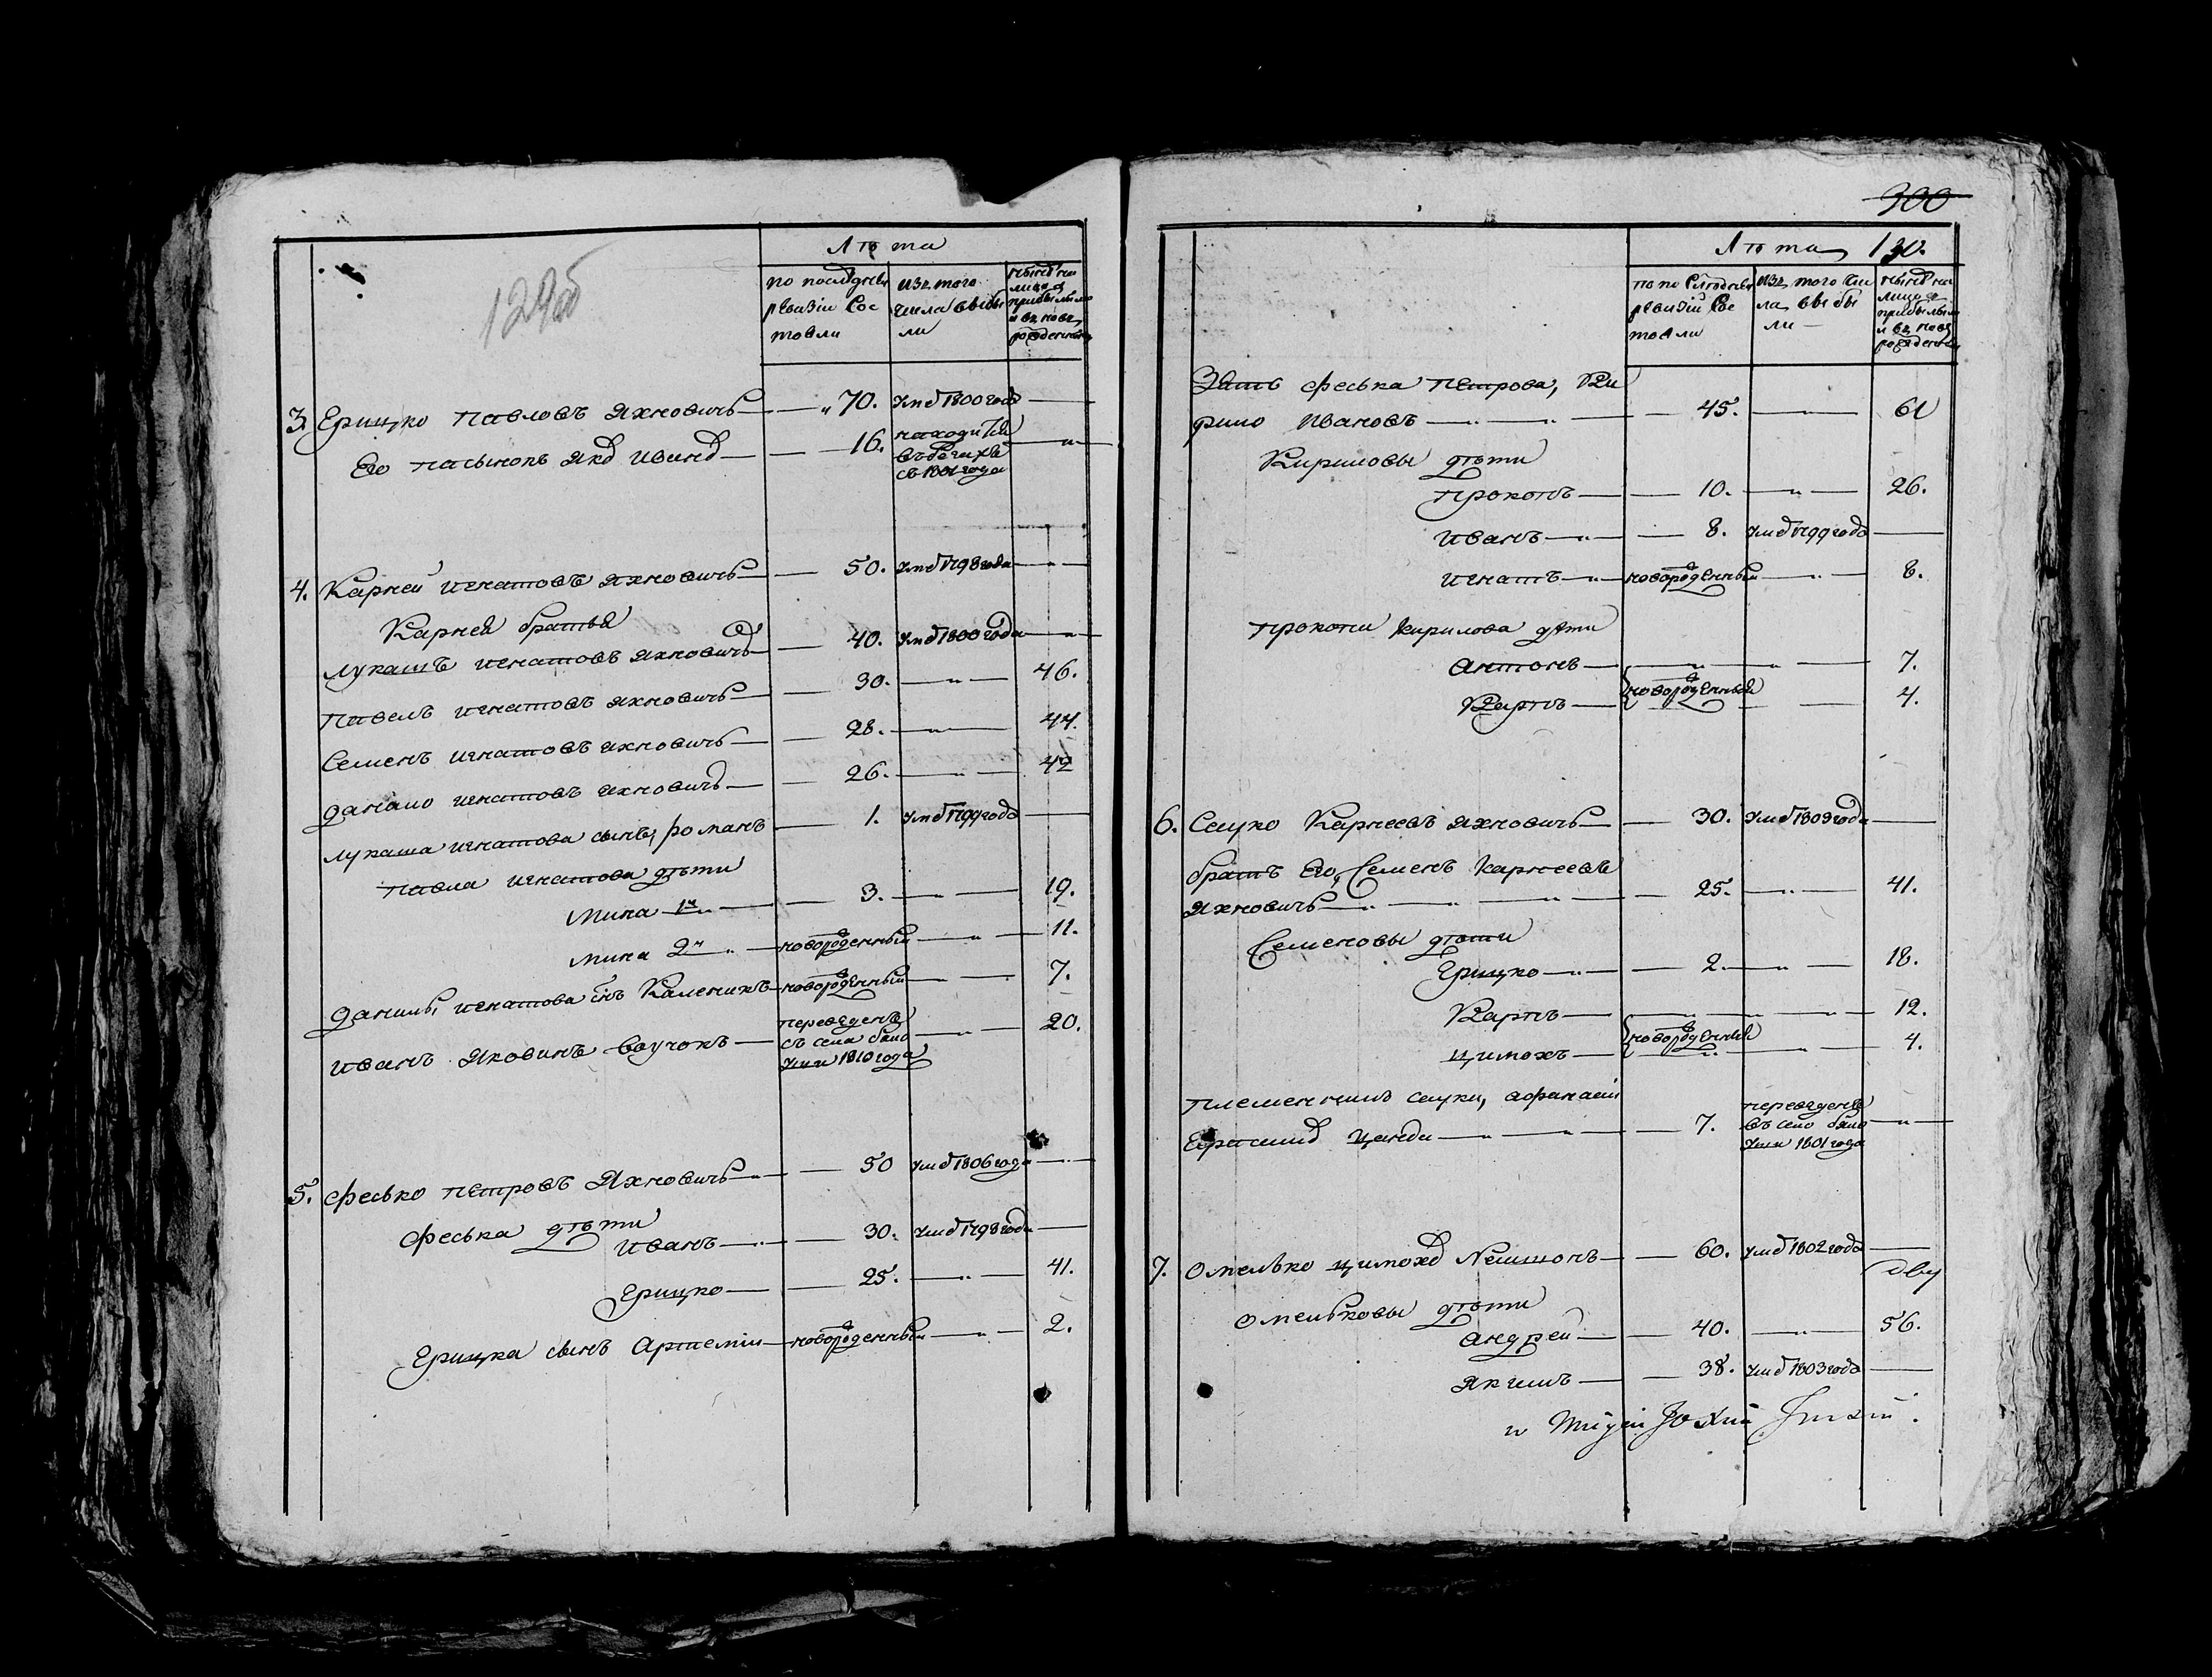 129об
Лѣта
по последней ревизіи состояли
изъ того числа выбыли
нынѣ на лицо съ прибылыми и вновь рожденными
3. Грицко Павловъ Яхновичъ — 70. умѣ 1800 года —
Его пасынокъ — 16. находится въ бегахъ съ 1801 года — " —
4. Карней Игнатовъ Яхновичъ — 50. умѣ 1798 года — " —
Карнея братья
Лукашъ Игнатовъ Яхновичъ — 40. умѣ 1800 года — " —
Павелъ Игнатовъ Яхновичъ — 30. — " — 46.
Семенъ Игнатовъ Яхновичъ — 28. — " — 44.
Данило Игнатовъ Яхновичъ — 26. — " — 42
Лукаша Игнатова сынъ, романъ — 1. умѣ 1799 года —
Павла Игнатова дѣти
Мина 1й — 3. — " — 19.
Мина 2й " — новорожденный — " — 11.
Данилы, Игнатова снъ Каленикъ — новорожденный — " — 7.
Иванъ Яковинъ — переведенъ съ села 1810 года — " — 20.
5. Фесько Петровъ Яхновичъ — " — 50 умѣ 1806 года — " —
Феська дѣти
Иванъ — " — 30. умѣ 1798 года —
Грицко — 25. — " — 41.
Грицка сынъ Артемій — новорожденный — " — 2.
300
Лѣта 130.
по последней ревизіи состояли
изъ того числа выбыли —
нынѣ на лицо съ прибылыми и вновь рожденными
Зять Феська Петрова, Ки
рило Ивановъ — " — " — 45. — 61
Кириловы дѣти
Прокопъ — 10. — " — 26.
Иванъ — " — 8. умѣ 1799 года —
Игнатъ — " — новорожденный — " — 8.
Прокопи Кирилова дѣти
Антонъ — " — " — 7.
новорожденныя
Карпъ — 4.
6. Сацко Карнеевъ Яхновичъ — 30. умѣ 1809 года —
братъ Его, Семенъ Карнеевъ
Яхновичъ — " — " — " — 25. — " — 41.
Семеновы дѣти
Грицко — " — 2. — " — 18.
Карпъ — " — " — 12.
новорожденныя
Цимохъ — " — " — 4.
Племенникъ Сацки, Афанасій
— " — " — 7. переведенъ въ село 1801 года — " —
7. Омелько Цимохѣ — 60. умѣ 1802 года —
Омельковы дѣти
Андрей — 40. — " — 56.
Якимъ — 38. умѣ 1803 года —